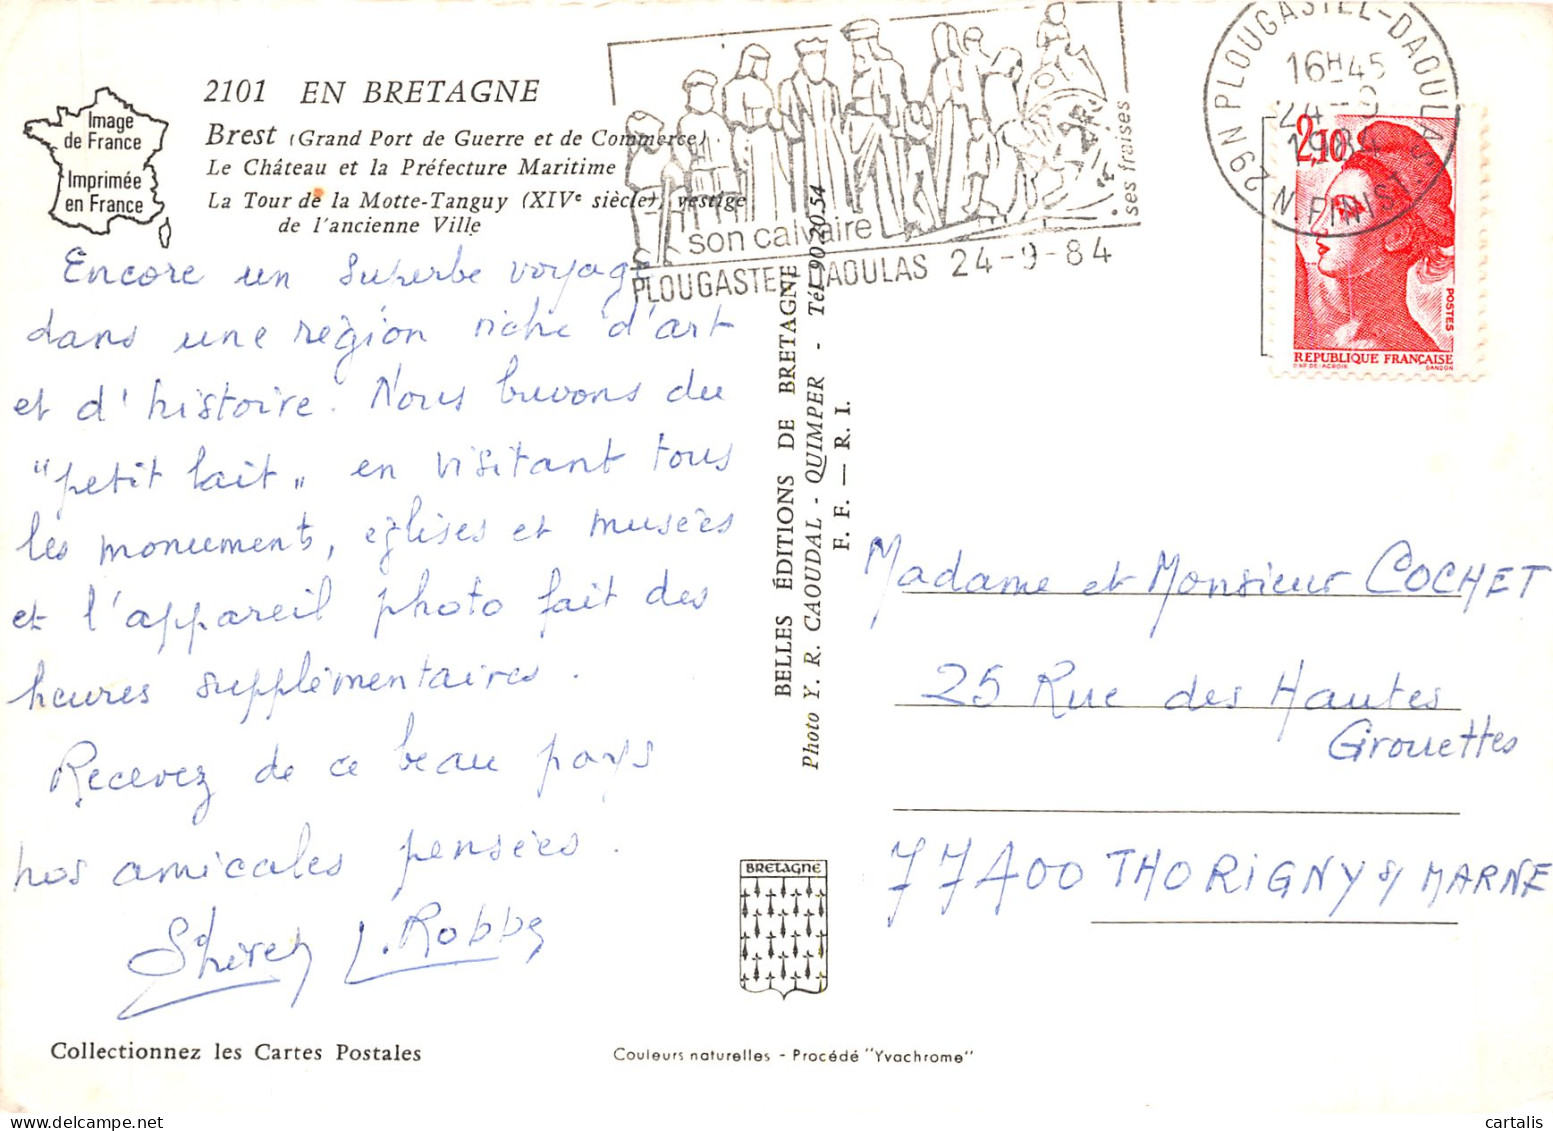 Image
de France
Imprimée
en France
2101 EN BRETAGNE
Brest (Grand Port de Guerre et de Commerce)
Le Château et la Préfecture Maritime
La Tour de la Motte-Tanguy (XIVe siècle), vestige
de l'ancienne Ville
son calvaire
ses fraises
PLOUGASTEL DAOULAS 24-9-84
29N PLOUGASTEL-DAOULAS
16H45
24-9
1984
N. FINIST.
2,10
POSTES
REPUBLIQUE FRANÇAISE
Encore un superbe voyage
dans une région riche d'art
et d'histoire. Nous buvons du
"petit lait" en visitant tous
les monuments, églises et musées
et l'appareil photo fait des
heures supplémentaires.
Recevez de ce beau pays
nos amicales pensées.
L. Robbe
BELLES ÉDITIONS DE BRETAGNE
Photo Y. R. CAOUDAL - QUIMPER - Tél. 90 20 54
F. F. — R. I.
Madame et Monsieur COCHET
25 Rue des Hautes
Grouettes
77400 THORIGNY s/ MARNE
BRETAGNE
Collectionnez les Cartes Postales
Couleurs naturelles - Procédé "Yvachrome"
cartalis